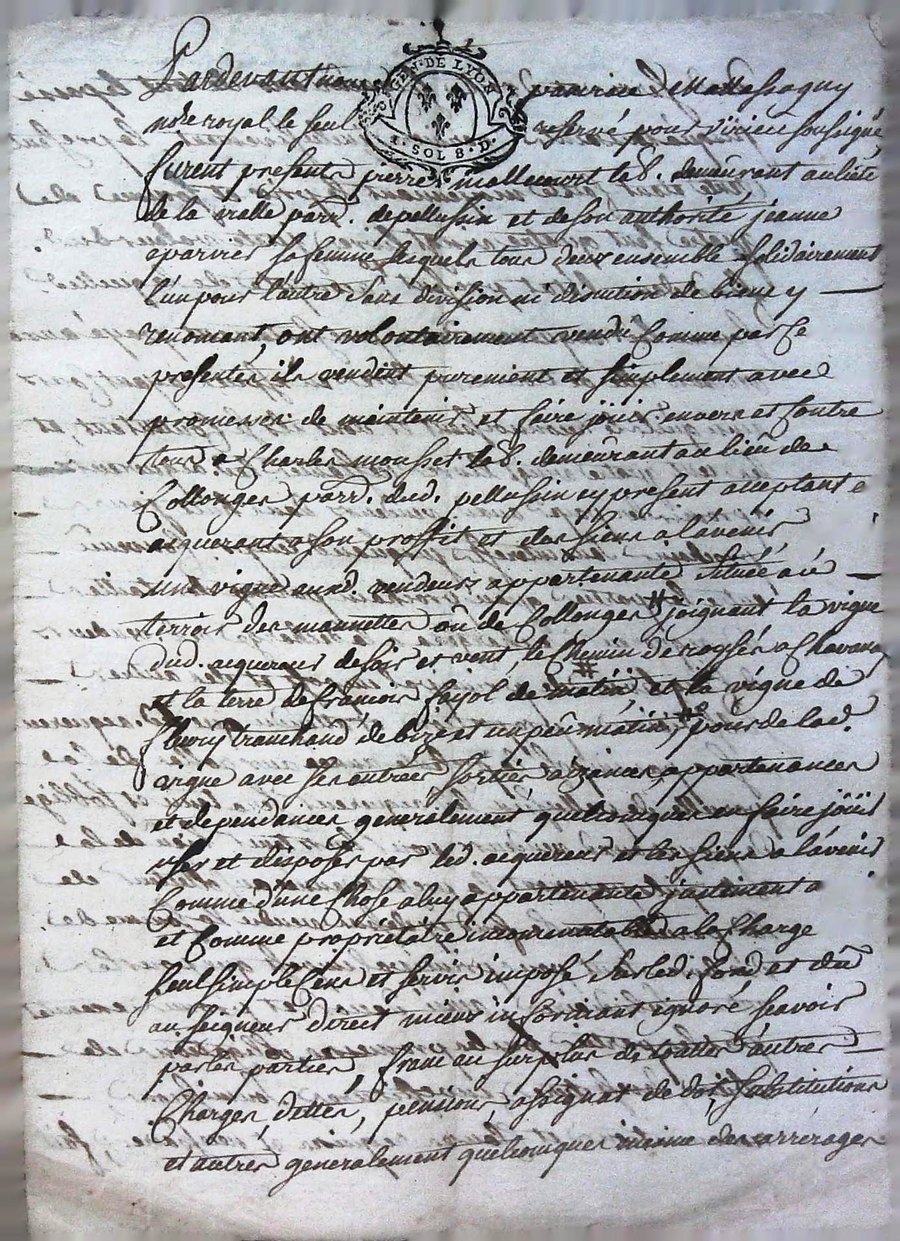 GEN. DE LYON
1. SOL 8. D.
Pardevant nous
nore royal le seul reservé pour Virieu soussigné
furent presents pierre mallecourt lab. demeurant au lieu
de la valle parr. de pellussin et de son authorité jeanne
sa femme lesquels tous deux ensemble solidairement
l'un pour l'autre sans division ni discution de biens y
renonçant, ont volontairement vendu comme par ce
presentes ils vendent purement et simplement avec
promesse de maintenir et faire joüir envers et contre
tous a Charles mousset lab. demeurant au lieu de
Collonges parr. dud. pellussin cy present acceptant e
aquerant a son proffit et des siens a l'avenir
une vigne auxd. vendeurs appartenante située aù
terroir des mannettes ou de Collonges # joignant la vigne
dud. aquereur de soir et vent, le chemin de roysé a Chavanay
et la terre de francois fayol de matin # et la vigne de
fleury tranchand de bize et un peu matin, pour de lad.
vigne avec ses entrées, sorties aizances, appartenances
et dependances generalement quelconques en faire joüir
user et disposer par led. aquereur et les siens a l'avenir
Comme d'une chose a luy appartenante justement a
et Comme propriétaire incommutable a la Charge
seul simple Cens et servis imposé sur led. fond et dû
au seigneur direct mieux informant ignoré scavoir
par les parties, franc au surplus de toutes autres
Charges, dettes, pensions, assignat de dot, substitutions
et autres generalement quelconques meme des arrérages